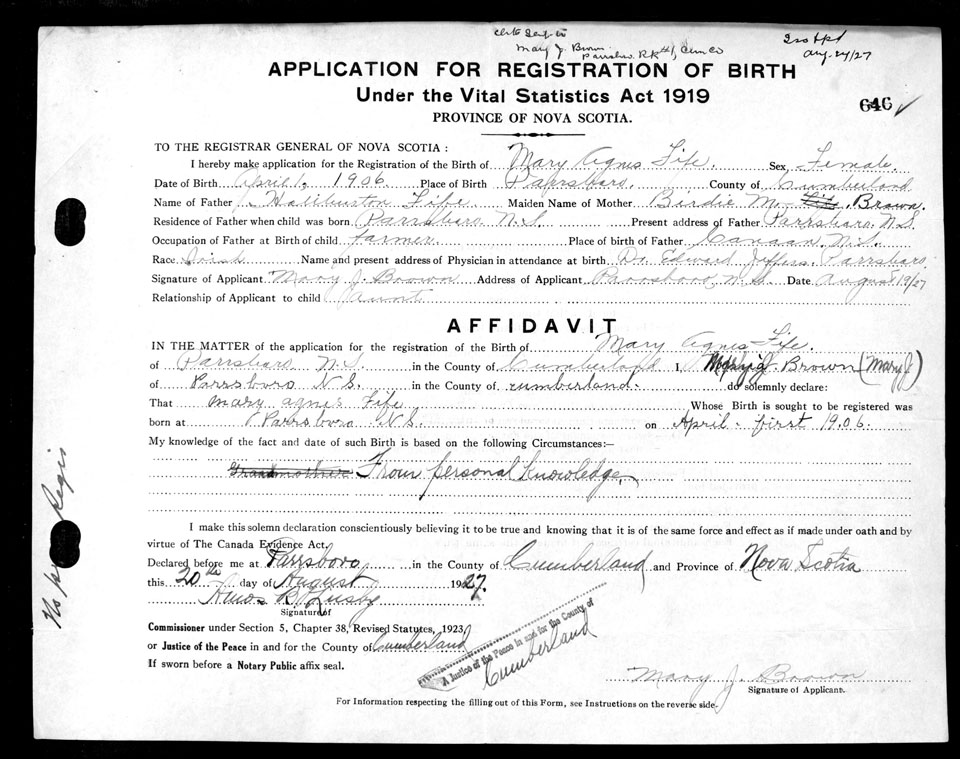 Mary J. Brown
Parrsboro R R #1, Cum Co
Aug. 24/27
APPLICATION FOR REGISTRATION OF BIRTH
Under the Vital Statistics Act 1919
646 ✓
PROVINCE OF NOVA SCOTIA.
TO THE REGISTRAR GENERAL OF NOVA SCOTIA :
I hereby make application for the Registration of the Birth of Mary Agnes Fife. Sex Female.
Date of Birth April 1, 1906. Place of Birth Parrsboro. County of Cumberland
Name of Father Haliburton Fife Maiden Name of Mother Birdie M. Brown.
Residence of Father when child was born Parrsboro N.S. Present address of Father Parrsboro, N.S.
Occupation of Father at Birth of child Farmer. Place of birth of Father Canaan, N.S.
Race Irish Name and present address of Physician in attendance at birth Dr. Edward Jeffers. Parrsboro.
Signature of Applicant Mary J. Brown Address of Applicant Parrsboro N.S. Date August 19/27
Relationship of Applicant to child Aunt
AFFIDAVIT
IN THE MATTER of the application for the registration of the Birth of Mary Agnes Fife.
of Parrsboro N.S. in the County of Cumberland I, Mary J. Brown (Mary J)
of Parrsboro N.S. in the County of cumberland. do solemnly declare:
That mary agnes Fife Whose Birth is sought to be registered was
born at Parrsboro N.S. on April. first 1906.
My knowledge of the fact and date of such Birth is based on the following Circumstances:—
Grandmother From personal knowledge.
I make this solemn declaration conscientiously believing it to be true and knowing that it is of the same force and effect as if made under oath and by
virtue of The Canada Evidence Act.
Declared before me at Parrsboro in the County of Cumberland and Province of Nova Scotia
this 20th day of August 1927.
Amos B. Lusby
Signature of
Commissioner under Section 5, Chapter 38, Revised Statutes, 1923
or Justice of the Peace in and for the County of Cumberland
If sworn before a Notary Public affix seal.
A Justice of the Peace in and for the County of
Cumberland
Mary J. Brown
Signature of Applicant.
For Information respecting the filling out of this Form, see Instructions on the reverse side.